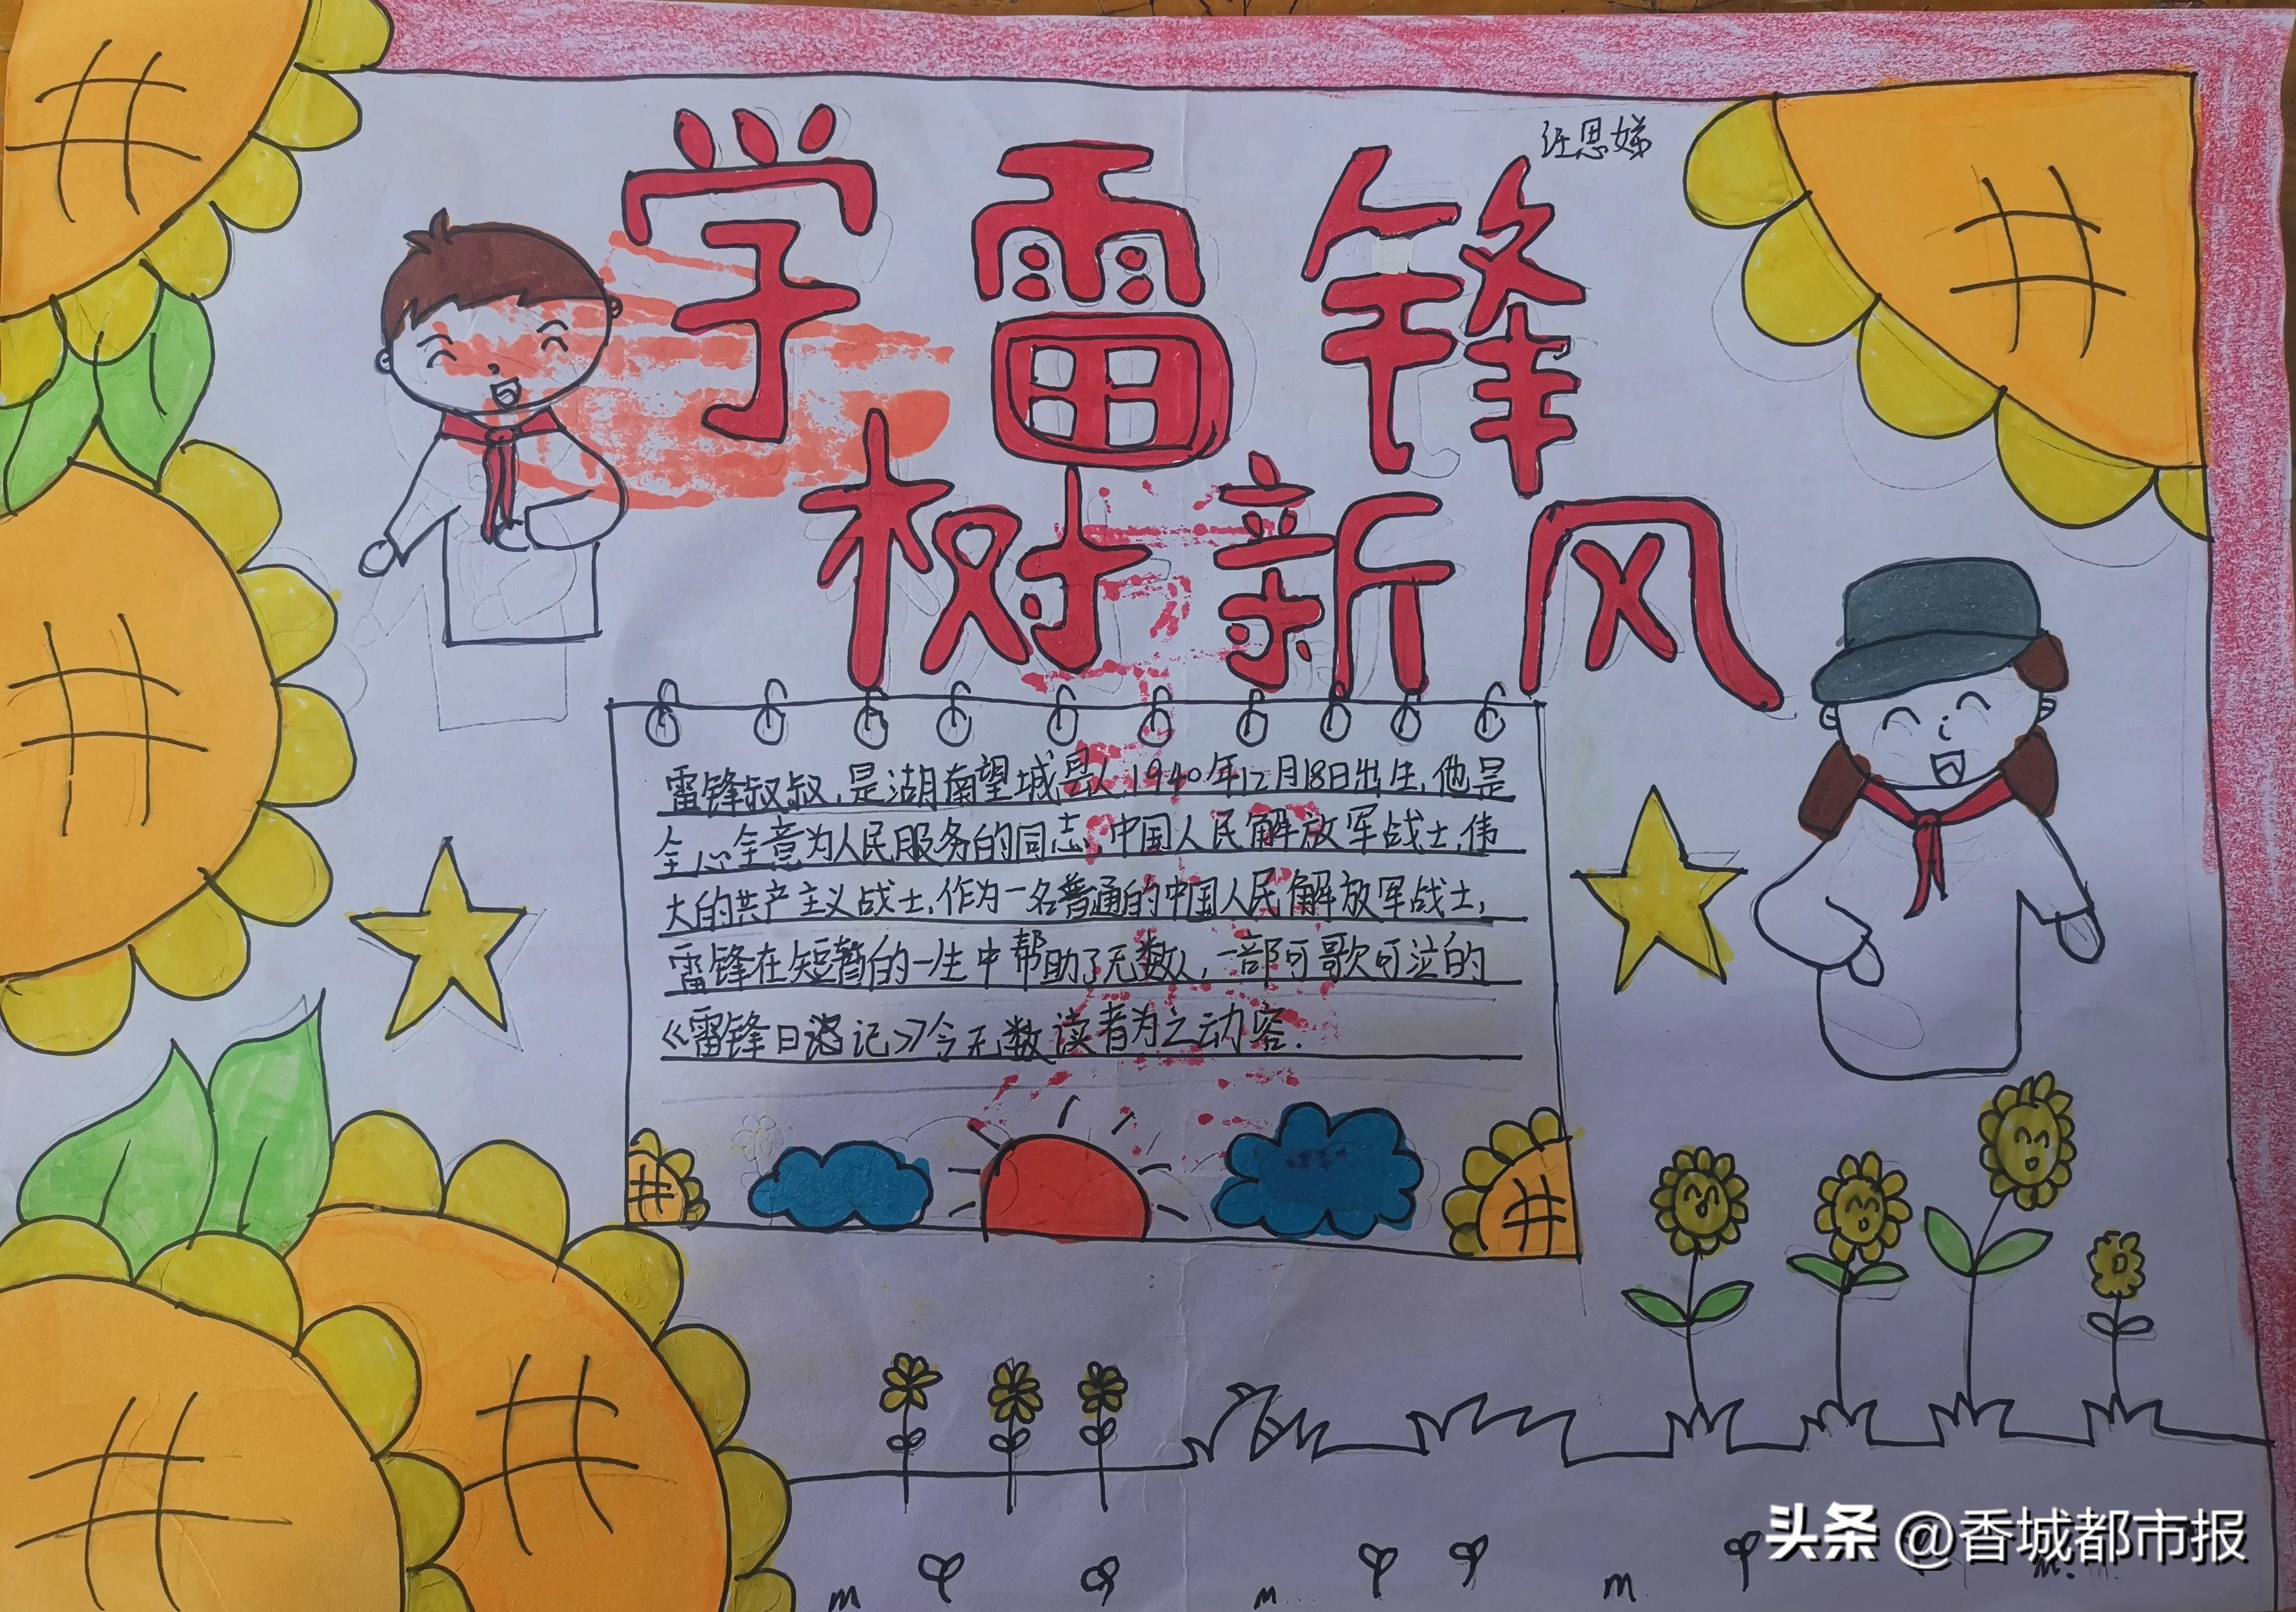 汪思娣
学雷锋
树新风
雷锋叔叔,是湖南望城县人1940年12月18日出生,他是
全心全意为人民服务的同志,中国人民解放军战士,伟
大的共产主义战士,作为一名普通的中国人民解放军战士,
雷锋在短暂的一生中帮助了无数人,一部可歌可泣的
《雷锋日记》令无数读者为之动容.
头条 @香城都市报